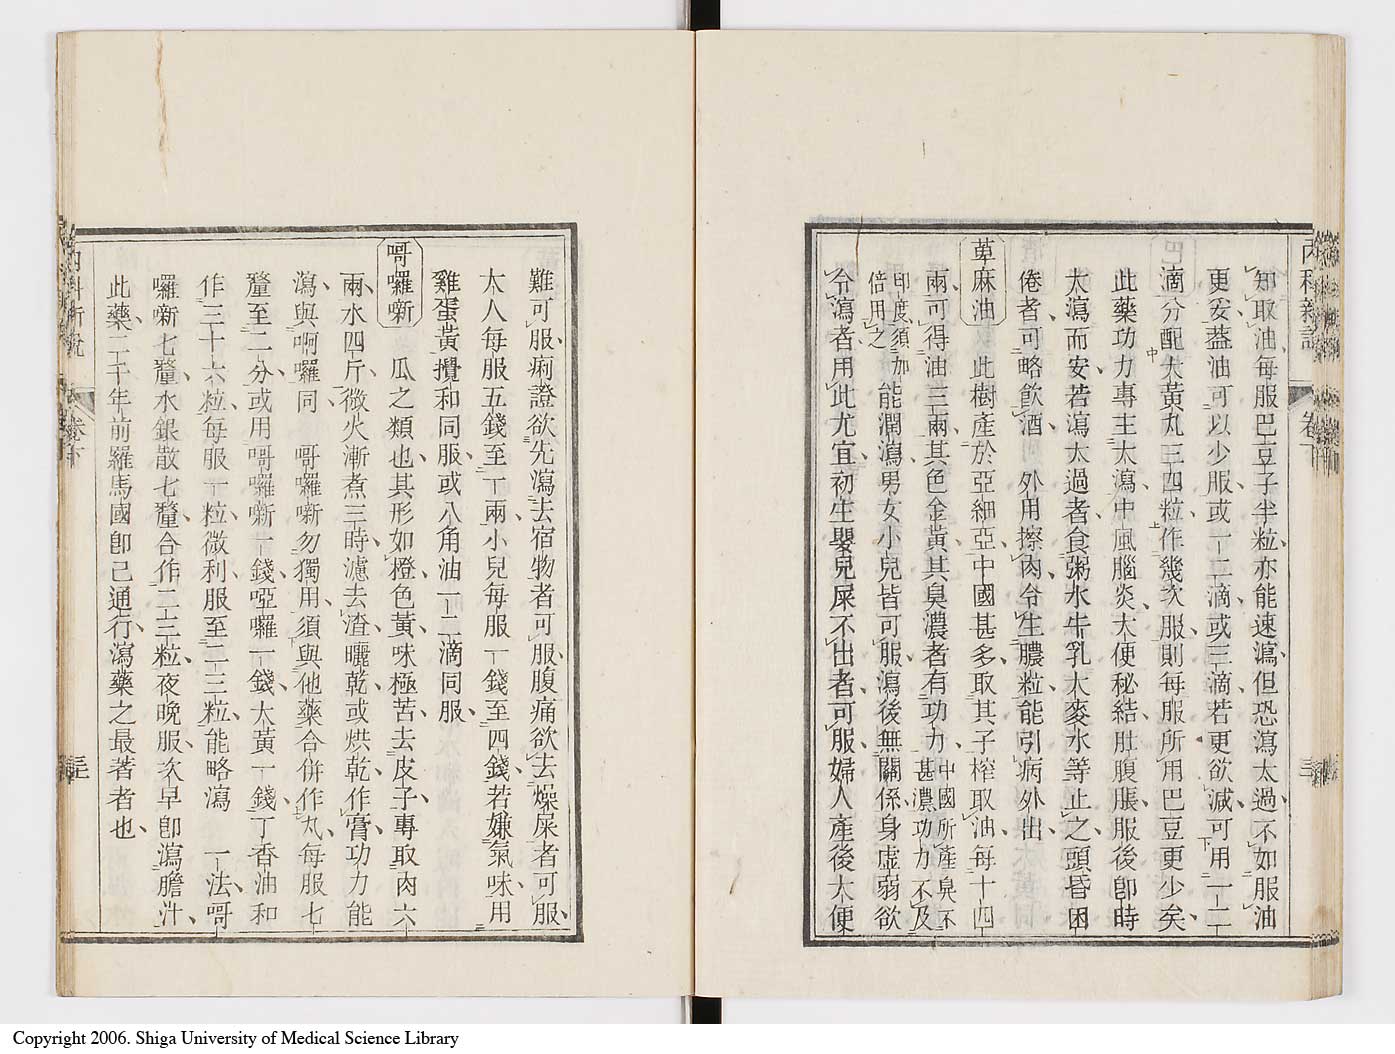 知取油每服巴豆子半粒亦能速瀉但恐瀉太過不如服油
更妥葢油可以少服或一二滴或三滴若更欲減可用一二
滴分配大黃丸三四粒作幾次服則每服所用巴豆更少矣
此藥功力專主大瀉中風腦炎大便秘結肚腹脹服後卽時
大瀉而安若瀉太過者食粥水牛乳大麥水等止之頭昏困
倦者可略飲酒 外用擦肉令生膿粒能引病外出
萆麻油 此樹產於亞細亞中國甚多取其子榨取油每十四
兩可得油三兩其色金黃其臭濃者有功力中國所產臭不甚濃功力不及
印度須加倍用之能潤瀉男女小兒皆可服瀉後無關係身虛弱欲
令瀉者用此尤宜初生嬰兒屎不出者可服婦人產後大便
難可服痢證欲先瀉去宿物者可服腹痛欲去燥屎者可服
大人每服五錢至一兩小兒每服一錢至四錢若嫌氣味用
雞蛋黃攪和同服或八角油一二滴同服
哥囉噺 瓜之類也其形如橙色黃味極苦去皮子專取肉六
兩水四斤微火漸煮三時濾去渣曬乾或烘乾作膏功力能
瀉與啊囉同 哥囉噺勿獨用須與他藥合併作丸每服七
釐至二分或用哥囉噺一錢啞囉一錢大黃一錢丁香油和
作三十六粒每服一粒微利服至二三粒能略瀉 一法哥
囉噺七釐水銀散七釐合作二三粒夜晚服次早卽瀉膽汁
此藥二千年前羅馬國卽已通行瀉藥之最著者也
內科新說
卷下
Copyright 2006. Shiga University of Medical Science Library